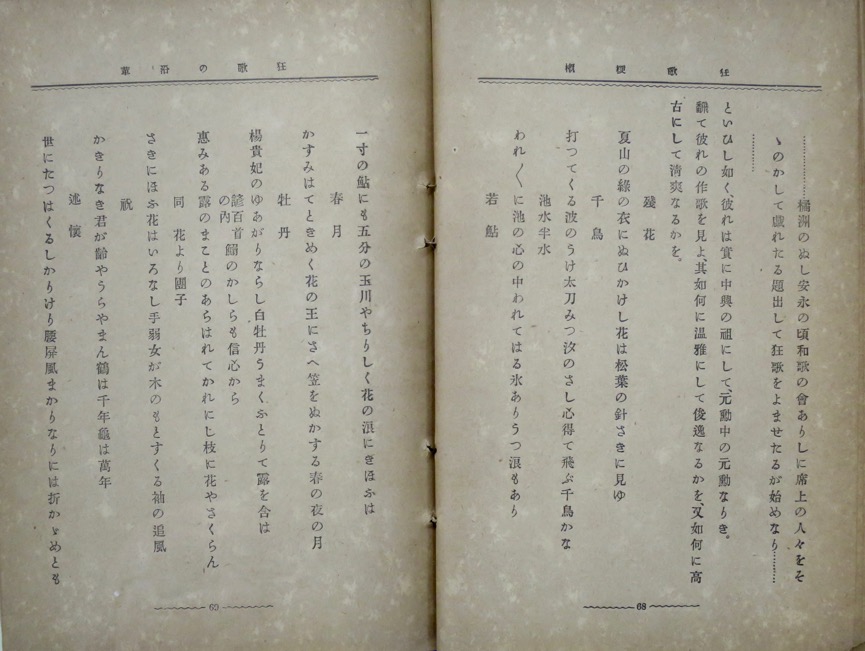 狂歌梗概
…………………橘洲のぬし安永の頃和歌の會ありしに席上の人々をそ
ゝのかして戯れたる題出して狂歌をよませたるが始めなり…………
…………
といひし如く、彼れは實に中興の祖にして、元勳中の元勳なりき。
飜て彼れの作歌を見よ、其如何に温雅にして俊逸なるかを、又如何に高
古にして清爽なるかを。
殘花
夏山の綠の衣にぬひかけし花は松葉の針さきに見ゆ
千鳥
打つてくる波のうけ太刀みつ汐のさし心得て飛ぶ千鳥かな
池水半氷
われ〳〵に池の心の中われてはる氷ありうつ浪もあり
若鮎
68
狂歌の沿革
一寸の鮎にも五分の玉川やちりしく花の浪にきほふは
春月
かすみはてときめく花の王にさへ笠をぬかする春の夜の月
牡丹
楊貴妃のゆあがりならし白牡丹うまくふとりて露を含は
諺百首の内 鰯のかしらも信心から
惠みある露のまことのあらはれてかれにし枝に花やさくらん
同 花より團子
さきにほふ花はいろなし手弱女が木のもとすくる袖の追風
祝
かきりなき君が齡やうらやまん鶴は千年龜は萬年
述懷
世にたつはくるしかりけり腰屏風まかりなりには折かゞめとも
69